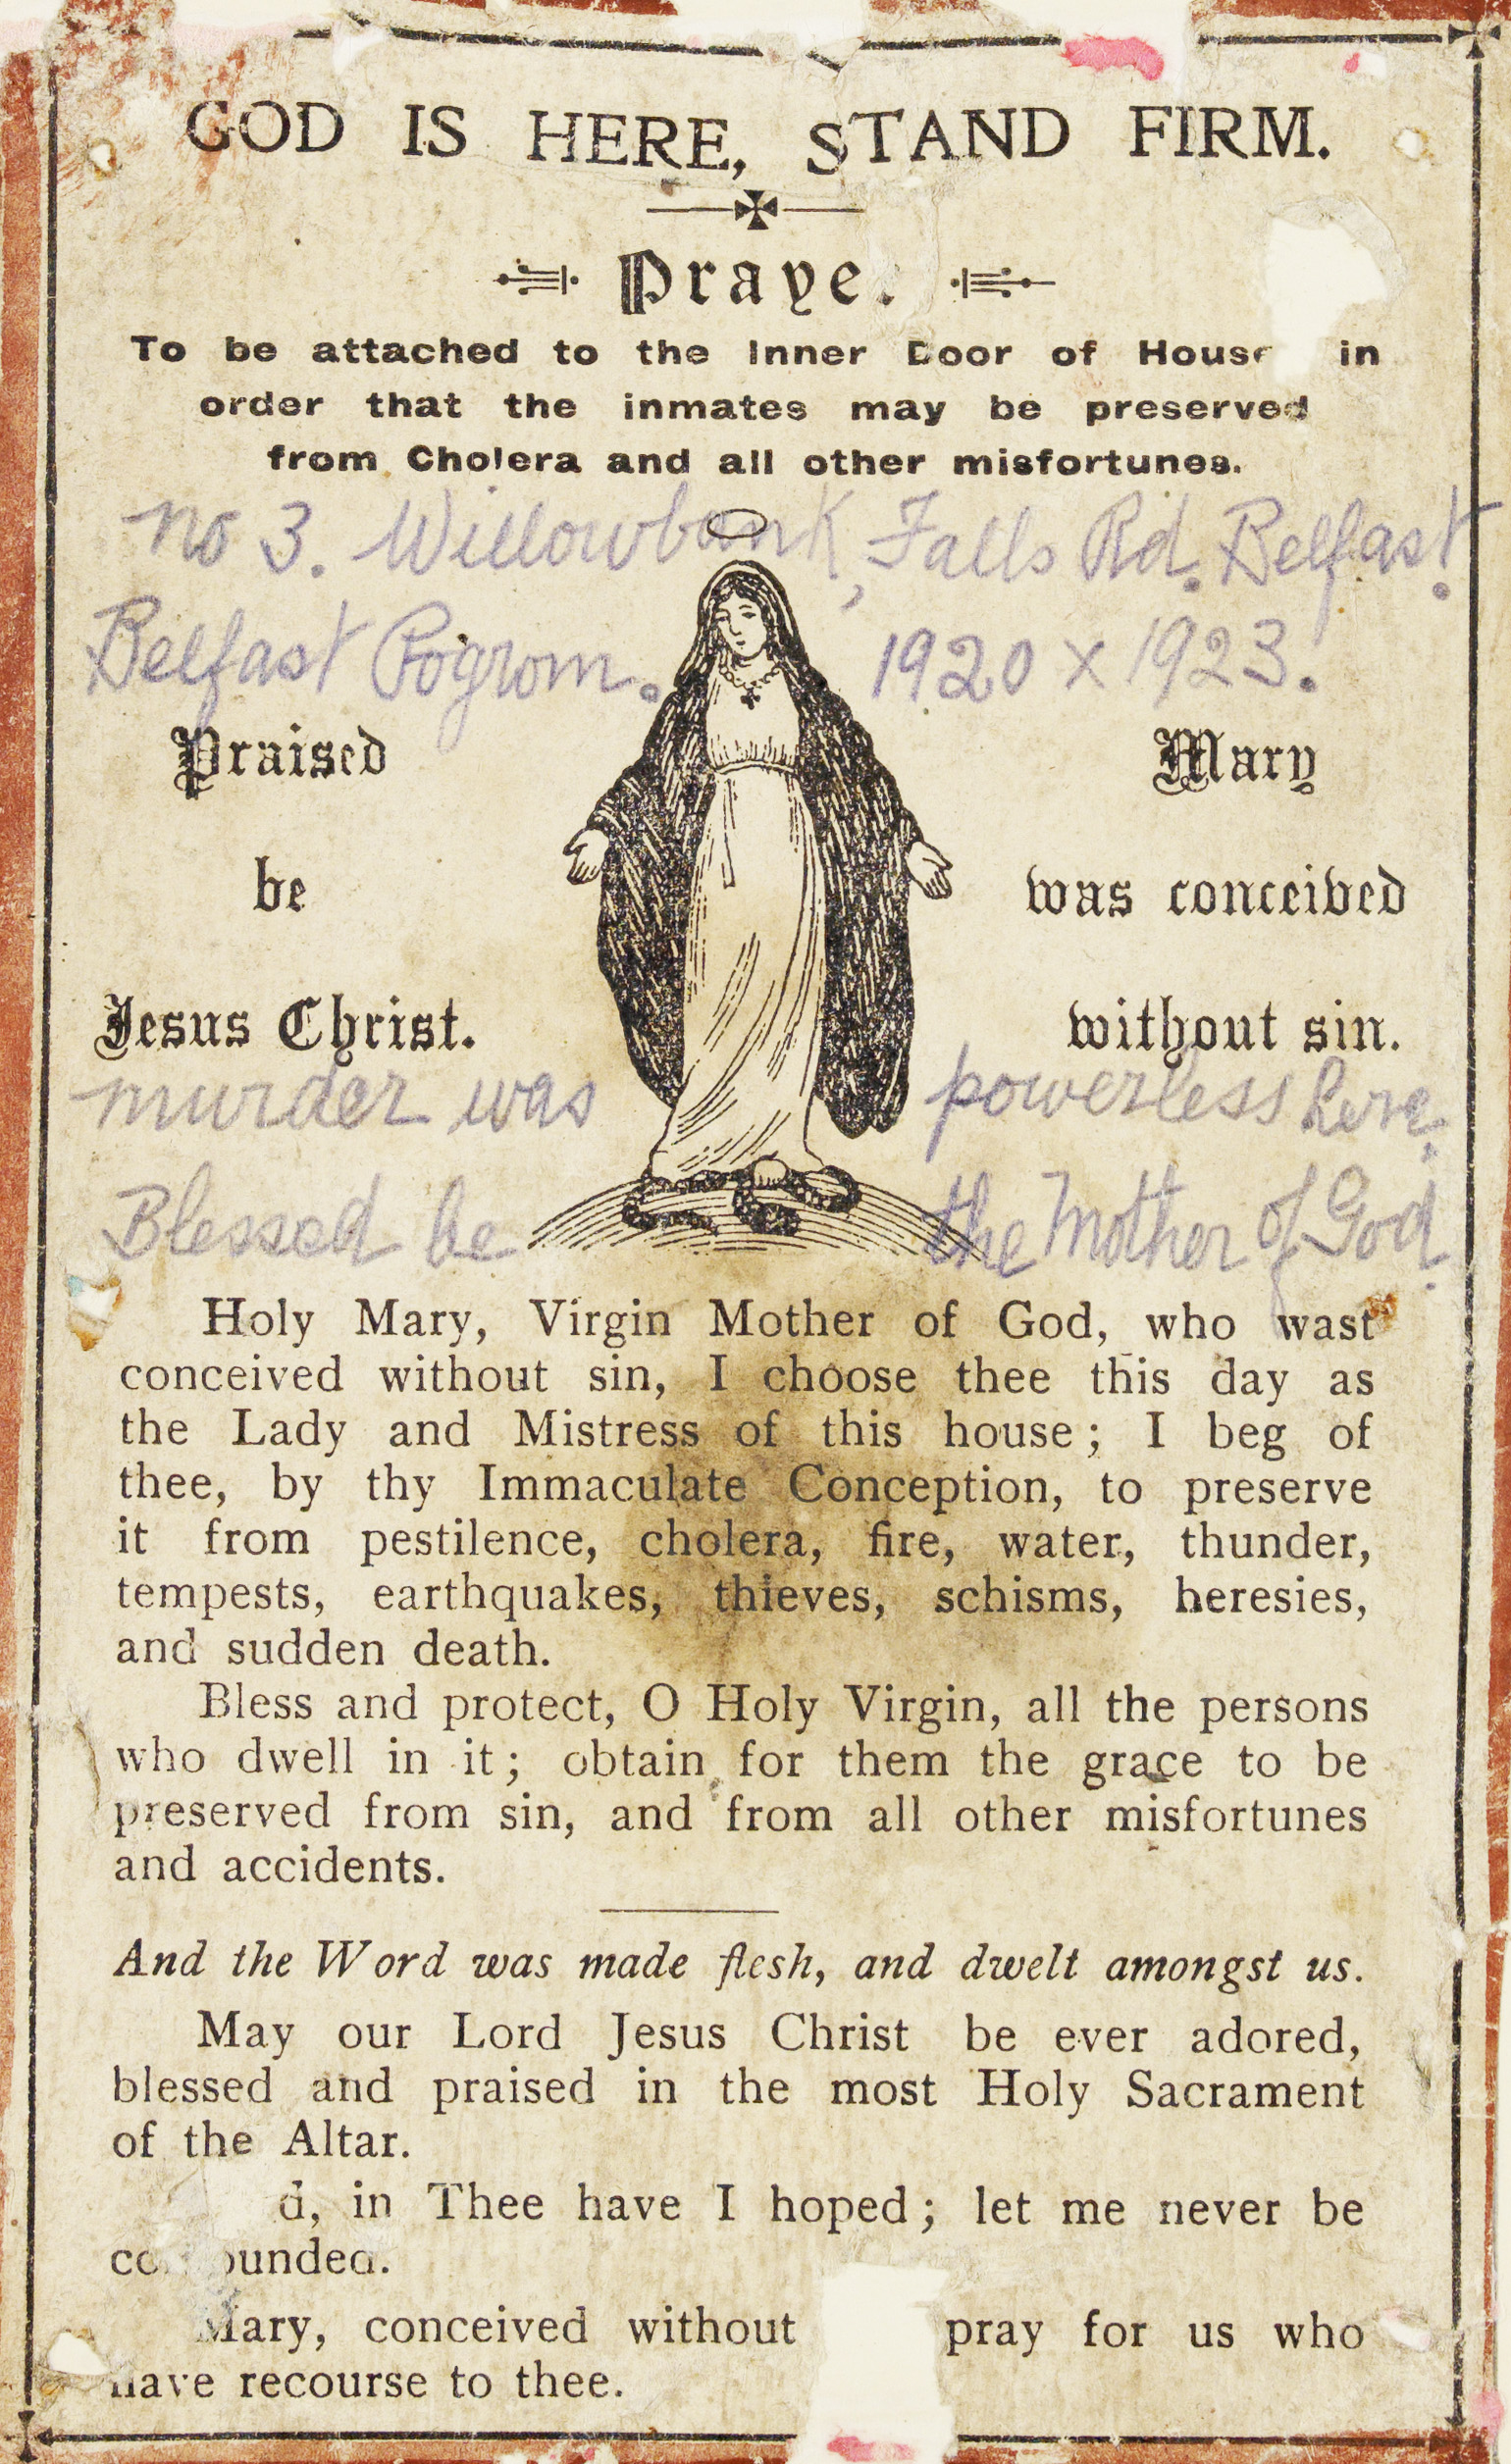 GOD IS HERE, STAND FIRM.
Praye.
To be attached to the Inner Door of House in
order that the inmates may be preserved
from Cholera and all other misfortunes.
no 3. Willowbank, Falls Rd. Belfast.
Belfast Pogrom. 1920 x 1923.
Praised Mary
be was conceived
Jesus Christ. without sin.
murder was powerless here.
Blessed be the Mother of God.
Holy Mary, Virgin Mother of God, who wast
conceived without sin, I choose thee this day as
the Lady and Mistress of this house; I beg of
thee, by thy Immaculate Conception, to preserve
it from pestilence, cholera, fire, water, thunder,
tempests, earthquakes, thieves, schisms, heresies,
and sudden death.
Bless and protect, O Holy Virgin, all the persons
who dwell in it; obtain for them the grace to be
preserved from sin, and from all other misfortunes
and accidents.
And the Word was made flesh, and dwelt amongst us.
May our Lord Jesus Christ be ever adored,
blessed and praised in the most Holy Sacrament
of the Altar.
d, in Thee have I hoped; let me never be
co ounded.
Mary, conceived without pray for us who
have recourse to thee.